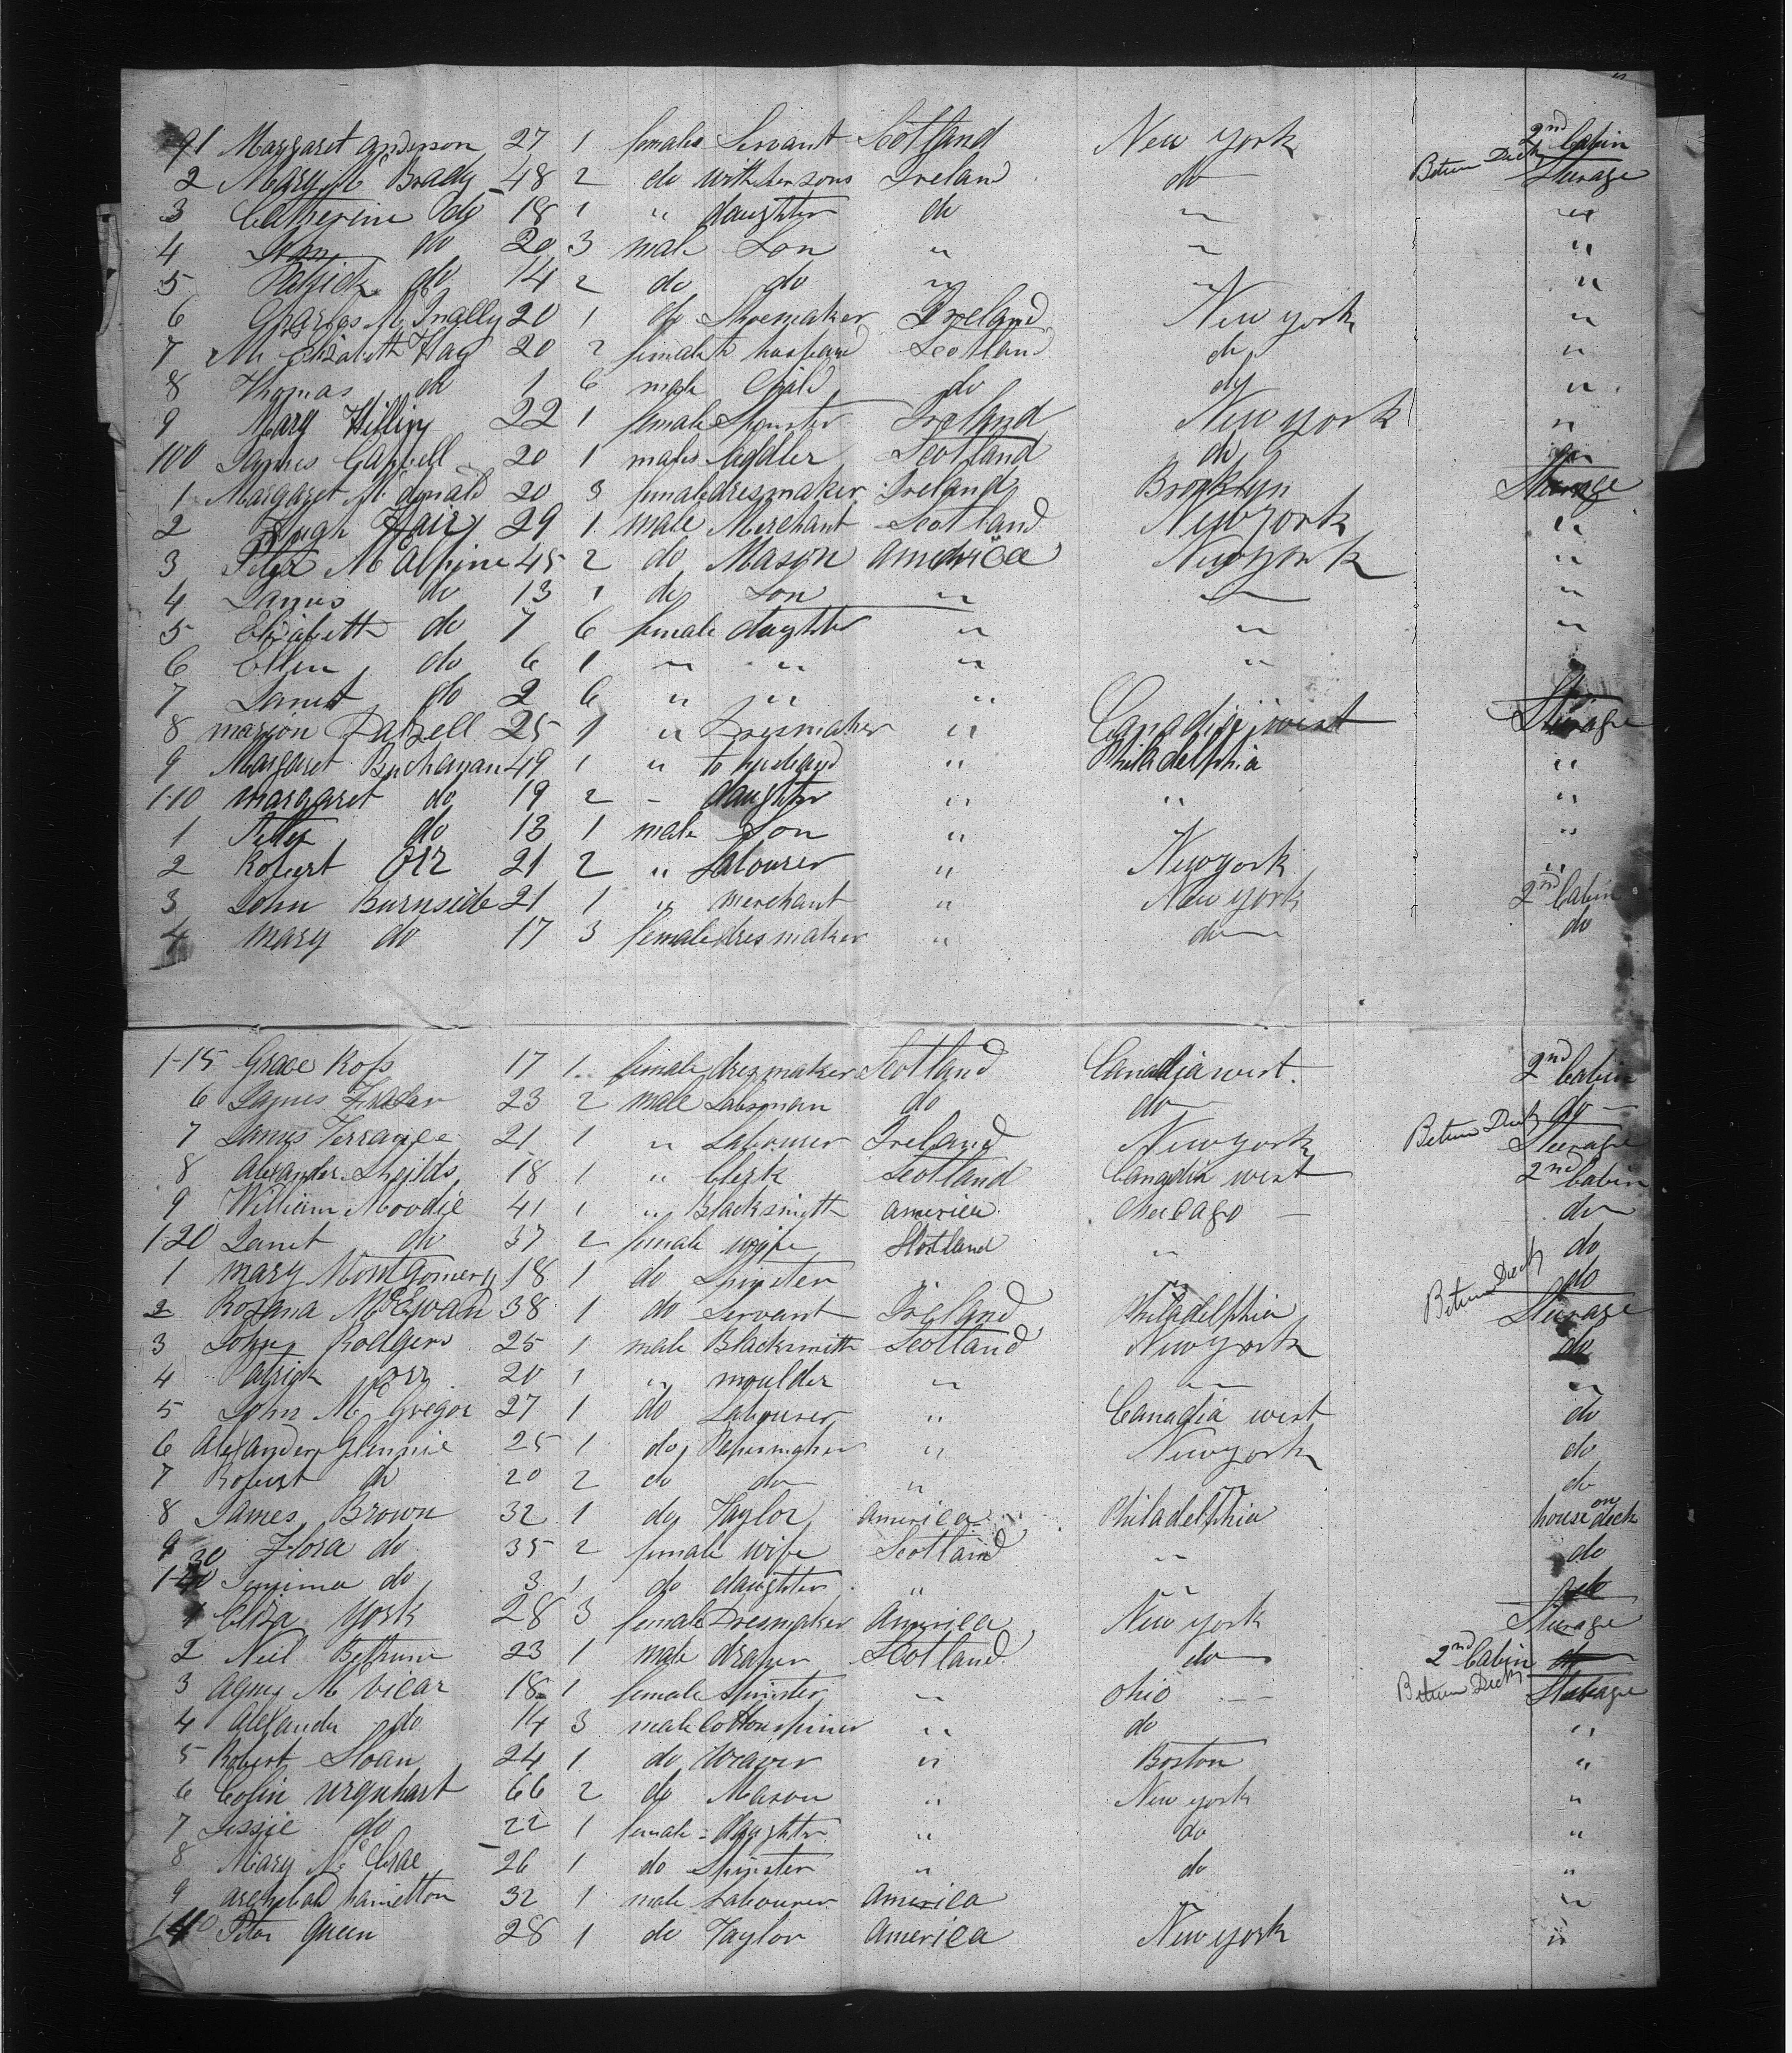 91 Margaret Anderson 27 1 female Servant Scotland New York 2nd Cabin
2 Mary Mc Brady 48 2 do with her sons Ireland do Betwen Deck Sturage
3 Catherine do 18 1 " daughter do " "
4 John do 20 3 male Son " " "
5 Patrick do 14 2 do do " " "
6 Charles Mc Inally 20 1 do Shoemaker Ireland New york "
7 Mrs Elizabeth Hay 20 2 female to husband Scotland do "
8 Thomas do 1 6 male Child do do "
9 Mary 22 1 female Spinster Ireland New york "
100 James 20 1 male Saddler Scotland do do
1 Margaret Mc donald 20 3 female dresmaker Ireland Brooklyn Sturage
2 Hugh Hair 29 1 male Merchant Scotland New York "
3 Peter Mc Alpine 45 2 do Mason America New york "
4 James do 13 1 do Son " " "
5 Elizabeth do 7 6 female daughter " " "
6 Ellen do 6 1 " " " "
7 Janet do 2 6 " " "
8 marion Dalzell 25 1 " Dresmaker " Canadia west Sturage
9 Margaret Buchanan 49 1 " to husband " Philadelphia "
1-10 margaret do 19 2 - daughter " " "
1 Peter do 13 1 male Son " " "
2 Robert Orr 21 2 " Labourer " New york "
3 John Burnside 21 1 " merchant " New york 2nd Cabin
4 mary do 17 3 female dres maker " do do
1-15 Grace Ross 17 1 female dresmaker Scotland Canadia west. 2nd Cabin
6 James Frazer 23 2 male Labsman do do do
7 James Terrance 21 1 " Labourer Ireland New york Betwen Deck Steerage
8 Alexander Sheilds 18 1 " Clerk Scotland Canadia west 2nd Cabin
9 William Moodie 41 1 " Blacksmith america Checago do
1-20 Janet do 37 2 female wife Scotland " do
1 mary Montgomery 18 1 do Spinster " " do
2 Roxana McEwan 38 1 do Servant Ireland Philadelphia Betwen Deck Sturage
3 John Rodgers 25 1 male Blacksmith Scotland New york do
4 Patrick orr 20 1 " moulder " " "
5 John Mc Gregor 27 1 do Labourer " Canadia west do
6 Alexander Glennie 25 1 do " New york do
7 Robert do 20 2 do do " do
8 James Brown 32 1 do Taylor America Philadelphia house on deck
9 Flora do 35 2 female wife Scotland " do
1-30 Jemima do 3 1 do daughter " " do
1 Eliza York 28 3 female Dresmaker America New york Sturage
2 Neil Bethune 23 1 male draper Scotland do 2nd Cabin do
3 Agnes Mc Vicar 18 1 female Spinster " ohio Betwen Deck Sturage
4 Alexander do 14 3 male Cottonspiner " do "
5 Robert Sloan 24 1 do Weaver " Boston "
6 Colin urquhart 66 2 do Mason " New york "
7 Jessie do 22 1 female daughter " do "
8 Mary Mc Crae 26 1 do Spinster " do "
9 archebald hamelton 32 1 male Labourer America " "
140 Peter Queen 28 1 do Taylor America New york "